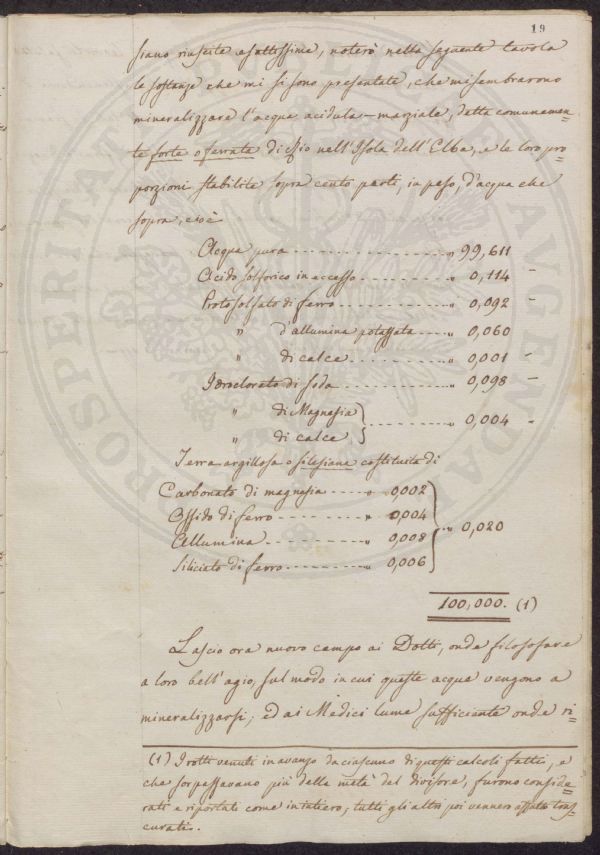 19
siano riuscite esattissime, noterò nella seguente tavola
le sostanze che mi si sono presentate, che mi sembrarono
mineralizzare l'acqua acidula-marziale, detta comunemen=
te forte o ferrata di Rio nell'Isola dell'Elba, e le loro pro=
porzioni stabilite sopra cento parti, in peso, d'acqua che
sopra, cioè
Acqua pura - - - - - - - - - - - - - " 99,611
Acido solforico in eccesso - - - - - - - - " 0,114 -
Protosolfato di ferro - - - - - - - - - " 0,092 -
" d'allumina potassata - - - - " 0,060
" di calce - - - - - - - - - " 0,001 -
Idroclorato di soda - - - - - - - - - " 0,098 -
" di Magnesia
" di calce } - - - - - - - - " 0,004 -
Terra argillosa o silesiana costituita di
Carbonato di magnesia - - - - " 0,002
Ossido di ferro - - - - - - - - " 0,004
Allumina - - - - - - - - - " 0,008 } " 0,020
Siliciato di ferro - - - - - - - " 0,006
100,000. (1)
Lascio ora nuovo campo ai Dotti, onde filosofare
a loro bell'agio, sul modo in cui queste acque vengono a
mineralizzarsi; ed ai Medici lume sufficiente onde ri=
(1) I rotti venuti in avanzo da ciascuno di questi calcoli fatti, e
che sorpassavano più della metà del divisore, furono conside=
rati e riportati come in intiero; tutti gli altri poi vennero affatto tras=
curati.
PROSPERITATI PUBLICAE AUGENDAE